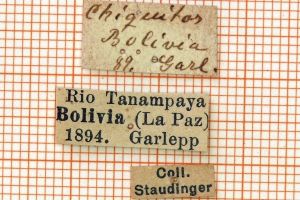 Chiquitos
Bolivia
89. Garl.
Rio Tanampaya
Bolivia (La Paz)
1894. Garlepp
Coll.
Staudinger